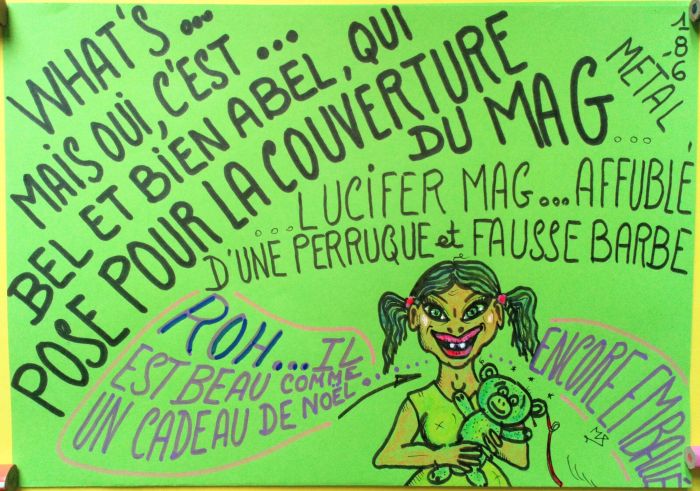 WHAT'S...
MAIS OUI, C'EST...
BEL ET BIEN ABEL, QUI
POSE POUR LA COUVERTURE
DU MAG...
METAL
186
...LUCIFER MAG...AFFUBLÉ
D'UNE PERRUQUE et FAUSSE BARBE
ROH...IL
EST BEAU COMME
UN CADEAU DE NOËL...
ENCORE EMBALLÉ